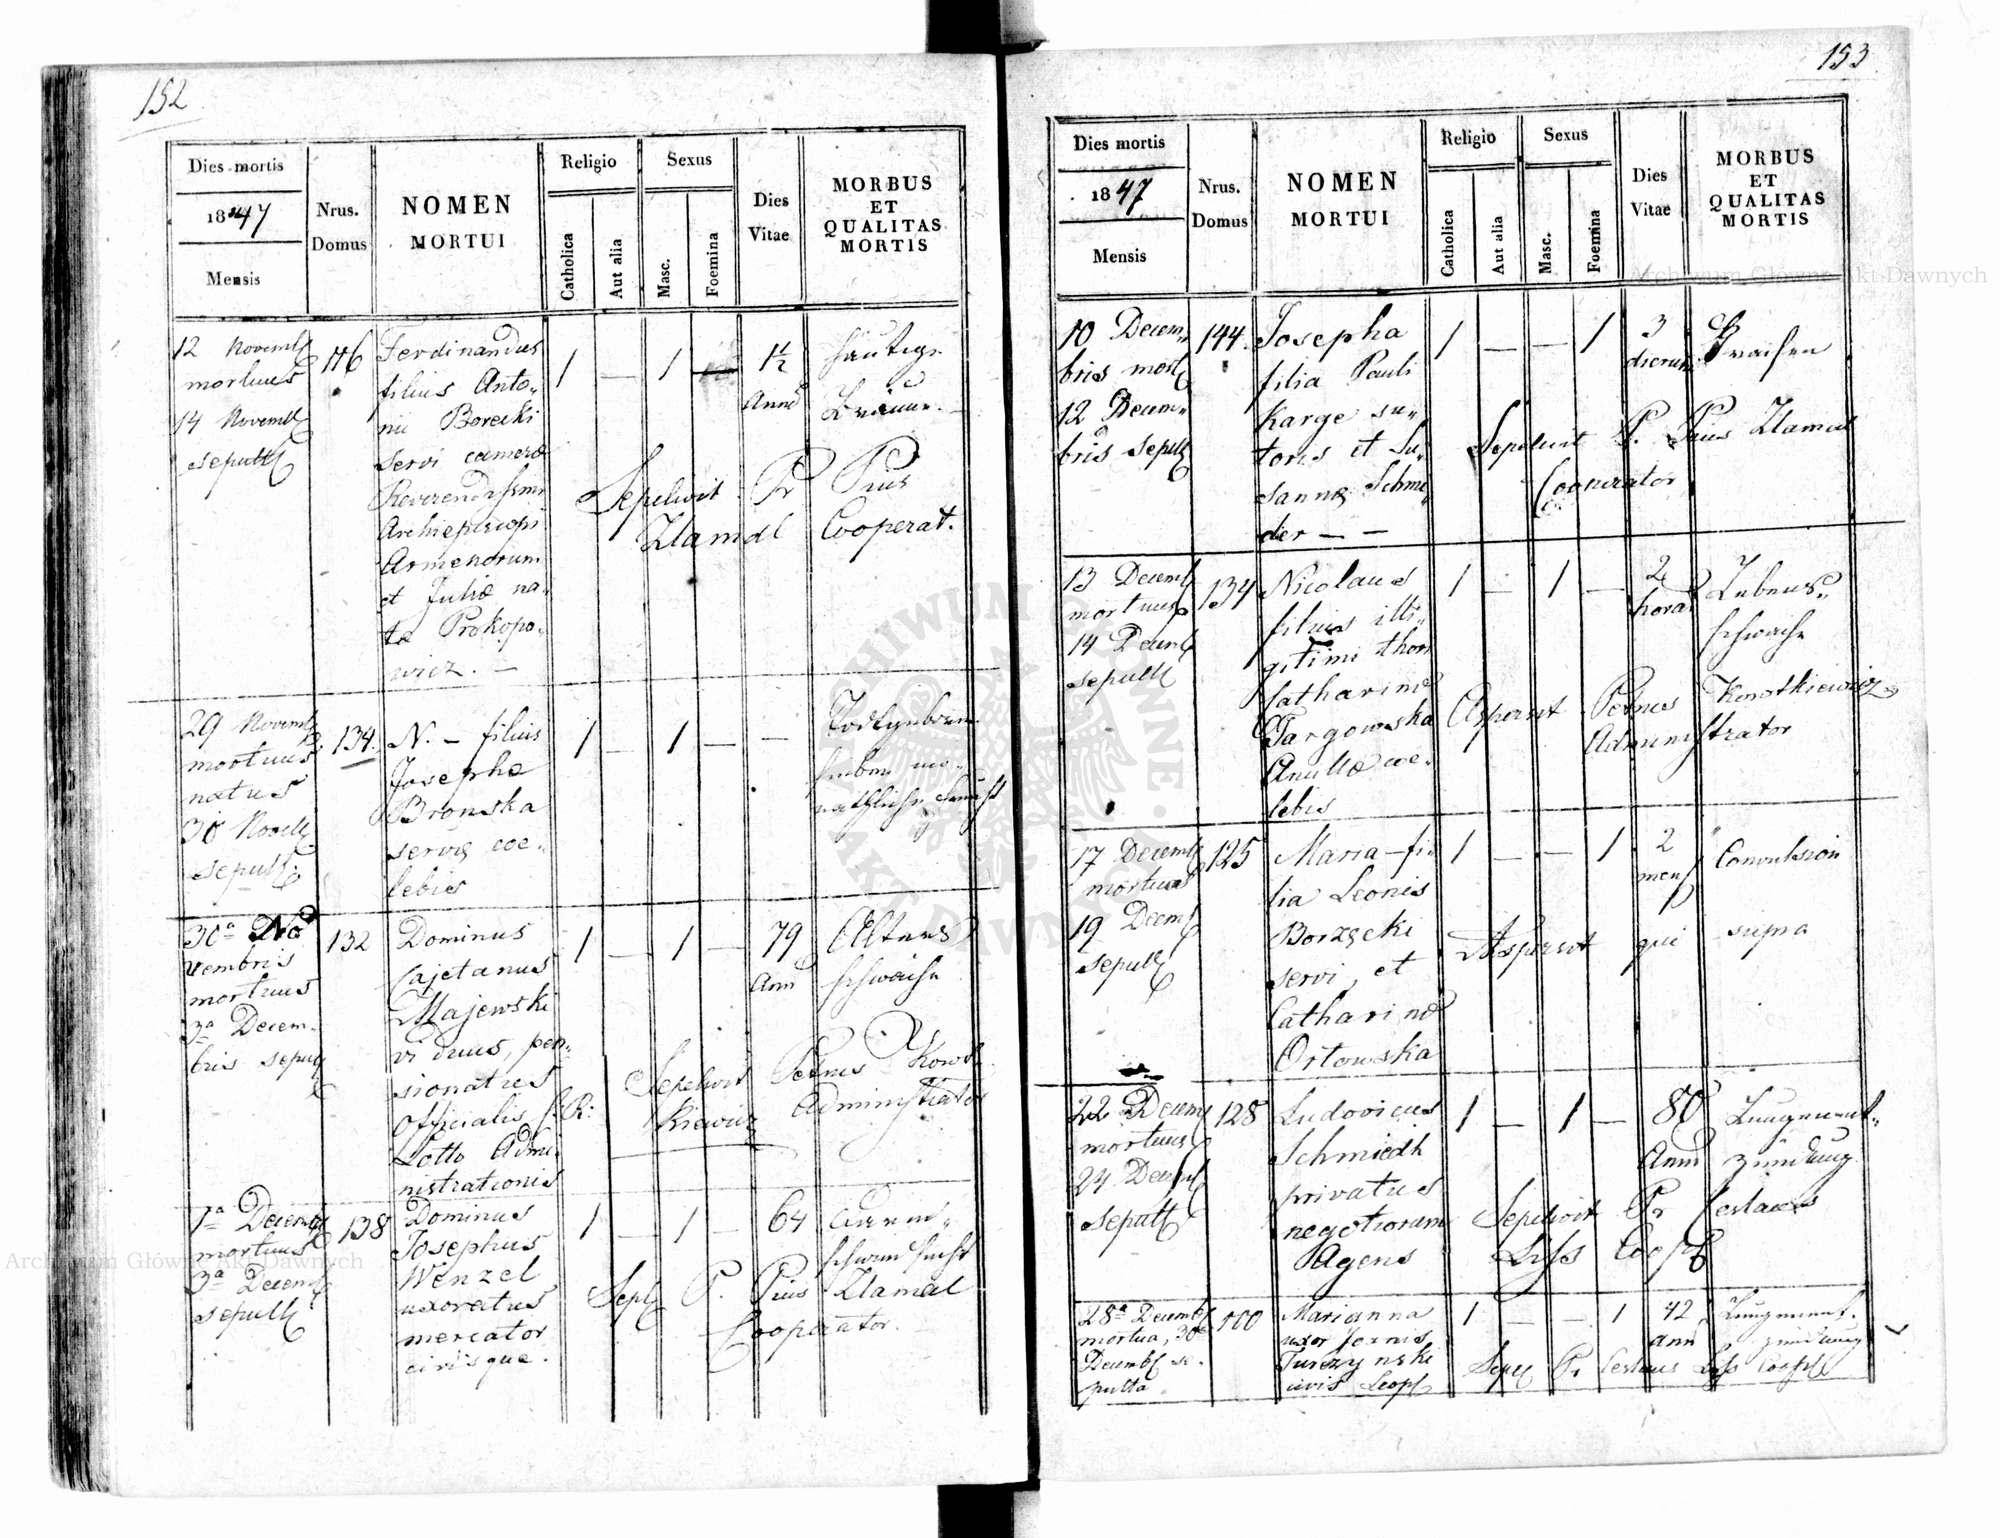 152
Dies mortis
1847
Mensis
Nrus.
Domus
NOMEN
MORTUI
Religio
Catholica
Aut alia
Sexus
Masc.
Foemina
Dies
Vitae
MORBUS
ET
QUALITAS
MORTIS
12 Novemb
mortuus
14 Novemb
sepult
116
Ferdinandus
filius Anto-
nii Borecki
servi camerae
Reverendissimi
Archiepiscopi
Armenorum
et Juliae na-
ta Prokopo-
wicz. —
1 — 1 —
1½
Anni
häutige
Bräune
Sepelivit Pr Pius
Zlamal Cooperat.
29 Novemb
mortuus
natus
30 Novemb
sepult
134.
N. – filius
Josephae
Bronska
servae coe-
lebis
1 — 1 — —
30a No
vembris
mortuus
3a Decem-
bris sepult
132
Dominus
Cajetanus
Majewski
viduus, pen-
sionatus
Officialis C: R:
Lotto Admi-
nistrationis
1 — 1 —
79
Ann
Alters
schwäche
Sepelivit Petrus Kowt
kiewicz Administrator
1a Decemb
mortuus
3a Decemb
sepult
138
Dominus
Josephus
Wenzel
uxoratus
mercator
civisque.
1 — 1 —
64
schwindsucht
Sepl P. Pius Zlamal
Cooperator.
153
Dies mortis
1847
Mensis
Nrus.
Domus
NOMEN
MORTUI
Religio
Catholica
Aut alia
Sexus
Masc.
Foemina
Dies
Vitae
MORBUS
ET
QUALITAS
MORTIS
10 Decem-
bris mort
12 Decem-
bris sepult
144.
Josepha
filia Pauli
Karge su-
toris et Su-
sannae Schnei-
der — —
1 — — 1
3
dierum
Fraisen
Sepelivit P. Pius Zlamal
Cooperator
13 Decemb
mortuus
14 Decemb
sepult
134
Nicolaus
filius illi-
gitimi thori
Catharinae
Targowska
Ancillae coe-
lebis
1 — 1 —
2
horae
Lebens-
schwäche
Aspersit Petrus Kowtkiewicz
Administrator
17 Decemb
mortua
19 Decemb
sepult
125
Maria – fi-
lia Leonis
Borzęcki
servi, et
Catharinae
Orłowska
1 — — 1
2
mens
Convulsion
Aspersit qui supra
22 Decemb
mortuus
24 Decemb
sepult
128
Ludovicus
Schmiedt
privatus
negotiorum
Agens
1 — 1 —
80
Anni
Lungenent-
zündung
Sepelivit Pr Ceslaus
Liss Coop
28a Decemb
mortua, 30a
Decemb se-
pulta
100
Marianna
uxor Joannis
Turczynski
civis Leopl
1 — — 1
42
ann
Lungenent-
zündung
Sepl Pr Ceslaus Liss Coopl
Archiwum Główne Akt Dawnych
Archiwum Główne Akt Dawnych
ARCHIWUM GŁÓWNE AKT DAWNYCH